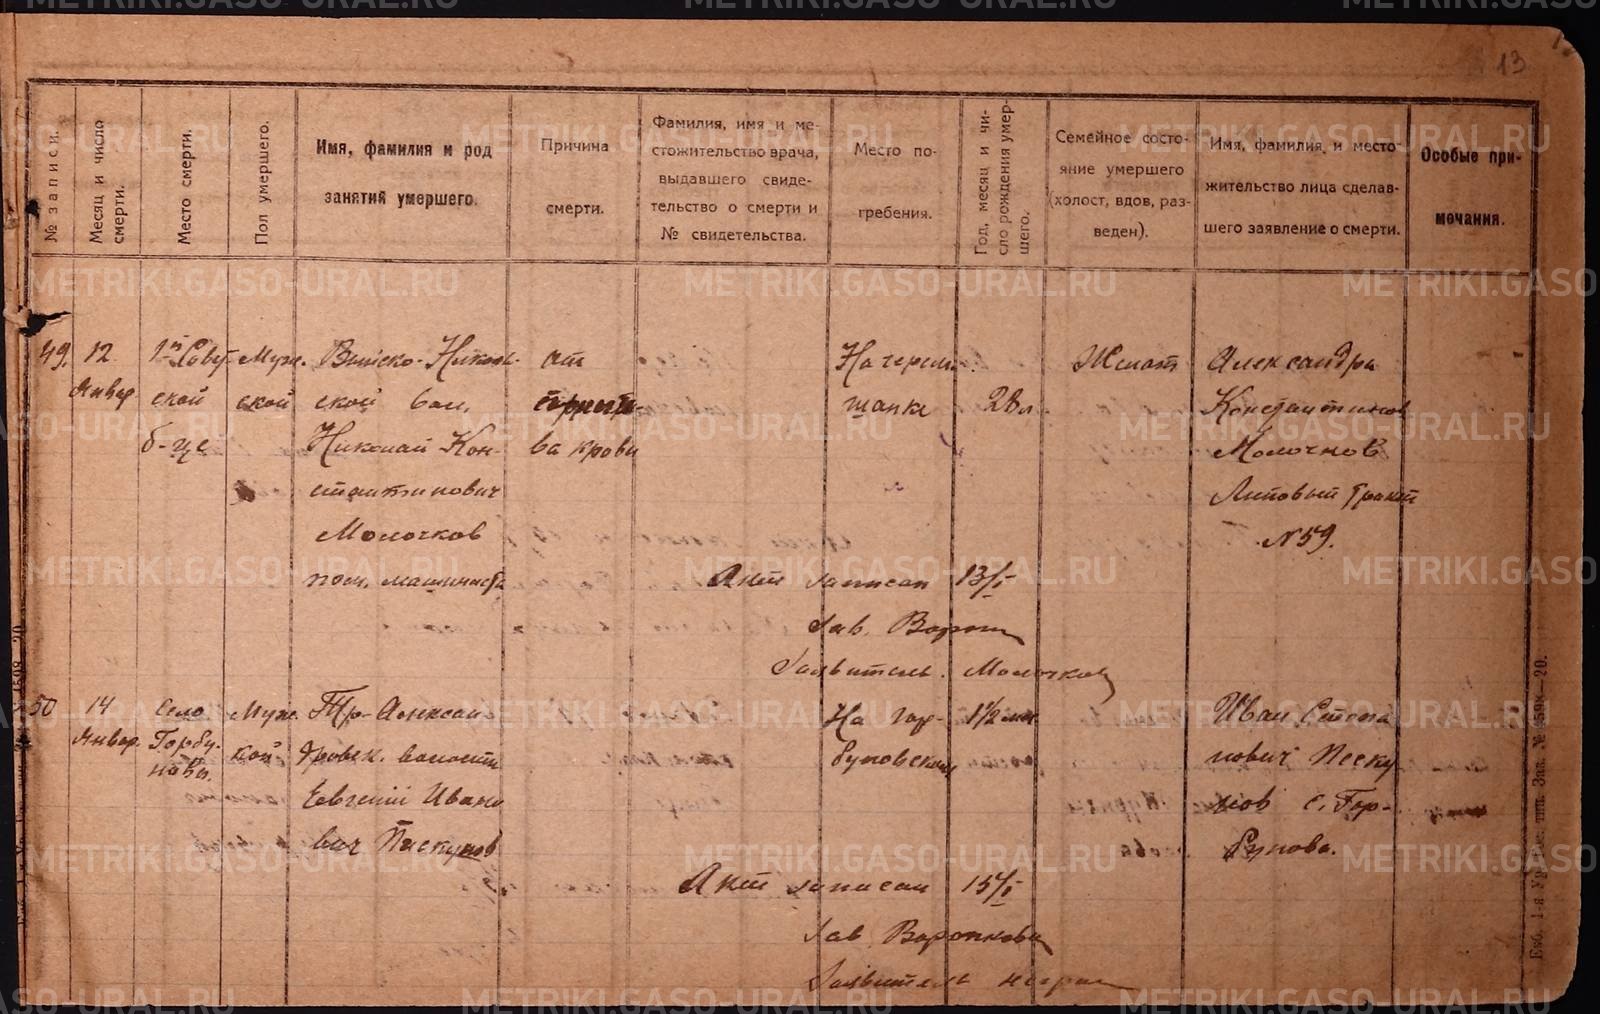 13
№ записи.
Месяц и число смерти.
Место смерти.
Пол умершего.
Имя, фамилия и род
занятий умершего.
Причина
смерти.
Фамилия, имя и ме-
стожительство врача,
выдавшего свиде-
тельство о смерти и
№ свидетельства.
Место по-
гребения.
Год, месяц и чи-
сло рождения умер-
шего.
Семейное состо-
яние умершего
(холост, вдов, раз-
веден).
Имя, фамилия и место-
жительство лица сделав-
шего заявление о смерти.
Особые при-
мечания.
49.
12
Январ
1й Совет-
ской
б-це
Муж.
ской
ской бол.
Николай Кон-
стантинович
Молочков
пом. машиниста
от
ва крови
На черем-
шанке
28 л
Женат
Александра
Константинов
Молочков
Липовый тракт
№ 59.
Акт записан 13/I
Зав.
Заявитель. Молочков
50
14
Январ.
Село
Горбу-
ново.
Муж.
ской
Тр-Алексан
дровск. волости
Евгений Ивано
вич Пискунов
На Гор-
буновском
1½ мес.
Иван Степа
нович Песку
нов с. Гор-
бунова.
Акт записан 15/I
Зав. Воронкова
Заявитель неграм
METRIKI.GASO-URAL.RU